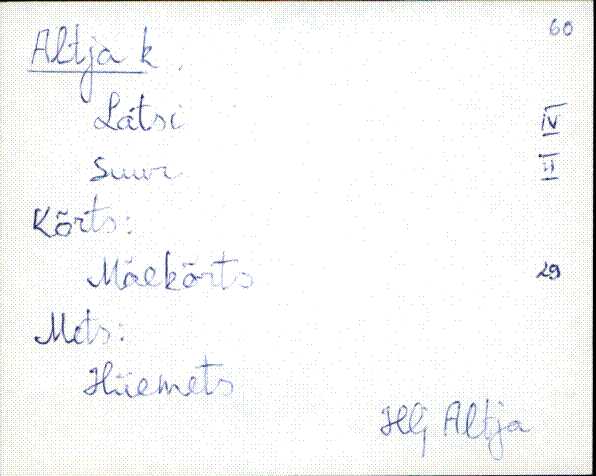 60
Altja k.
Lätsi IV
Suur II
Kõrts:
Mäekõrts 29
Mets:
Hiiemets
Hlj Altja